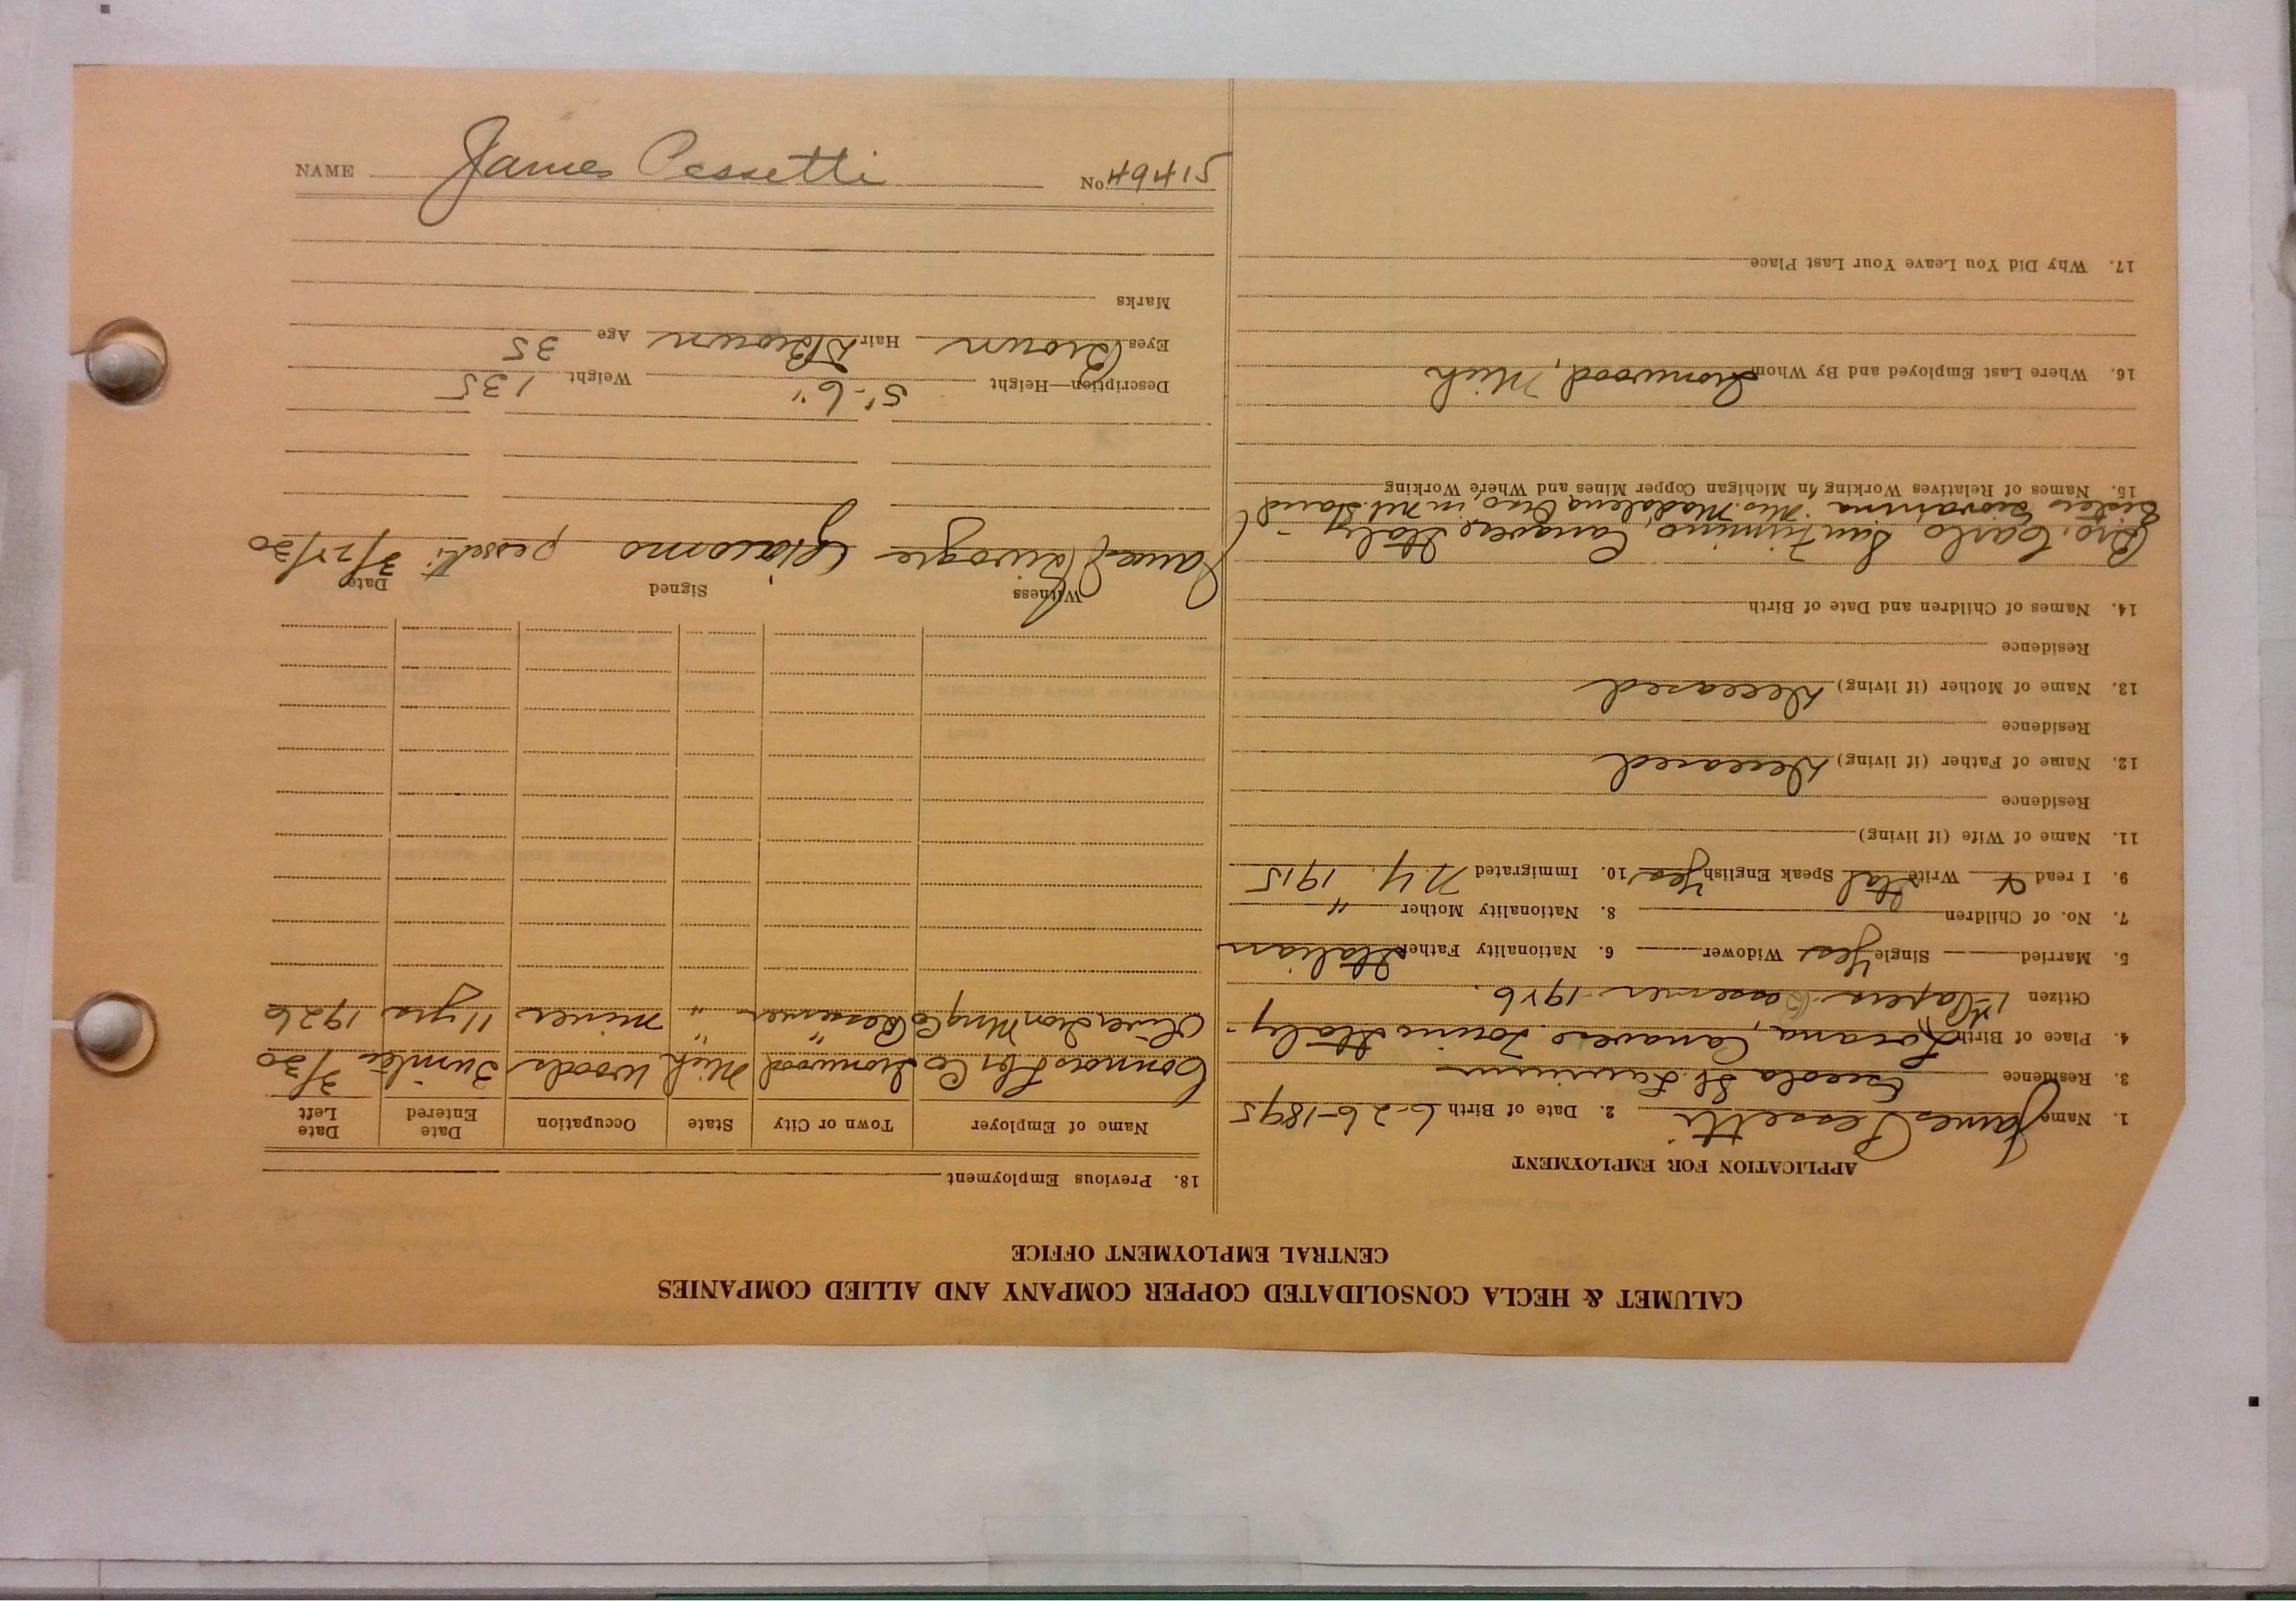 NAME James Pessetti No. 49415
CALUMET & HECLA CONSOLIDATED COPPER COMPANY AND ALLIED COMPANIES
CENTRAL EMPLOYMENT OFFICE
APPLICATION FOR EMPLOYMENT
1. Name James Pessetti 2. Date of Birth 6-26-1895
3. Residence Osceola
4. Place of Birth Canavese Torino Italy-
Citizen 1st Papers Bessemer-1926.
5. Married Single Yes Widower 6. Nationality Father Italian
7. No. of Children 8. Nationality Mother "
9. I read & Write Ital Speak English Yes 10. Immigrated N.Y. 1915
11. Name of Wife (if living)
Residence
12. Name of Father (if living) Deceased
Residence
13. Name of Mother (if living) Deceased
Residence
14. Names of Children and Date of Birth
Bro. Carlo San Firmino, Canavese Italy-
Sisters Giovanina Mrs. Madalena in
15. Names of Relatives Working in Michigan Copper Mines and Where Working
16. Where Last Employed and By Whom Ironwood, Mich
17. Why Did You Leave Your Last Place
18. Previous Employment
Name of Employer Town or City State Occupation Date Entered Date Left
Connors Lbr Co Ironwood Mich Woods 3/30
Oliver Iron Mng Co Bessemer " miner 11 yrs 1926
Witness Signed Date
James Giacomo pessetti 3/27/30
Description—Height 5'-6" Weight 135
Eyes Brown Hair Brown Age 35
Marks